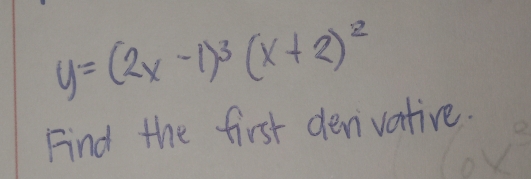 y = (2x - 1)³ (x + 2)²
Find the first derivative.